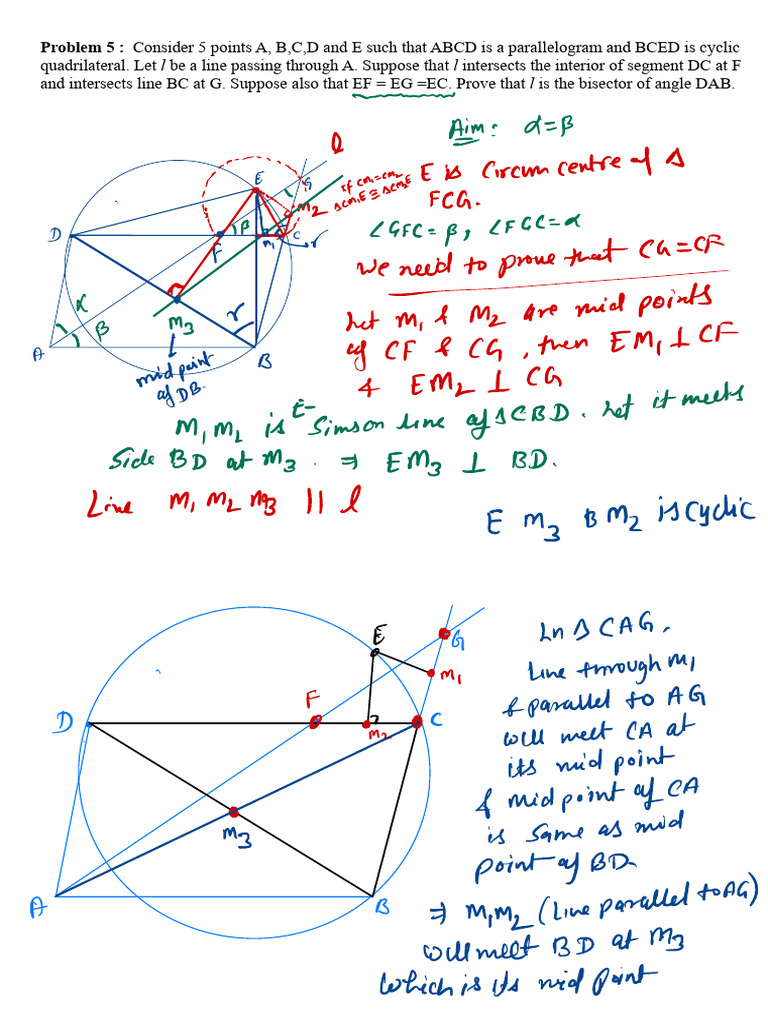 Problem 5 : Consider 5 points A, B,C,D and E such that ABCD is a parallelogram and BCED is cyclic
quadrilateral. Let l be a line passing through A. Suppose that l intersects the interior of segment DC at F
and intersects line BC at G. Suppose also that EF = EG =EC. Prove that l is the bisector of angle DAB.
Aim: α=β
l
E is Circumcentre of Δ
FCG.
if CM1=CM2
ΔCM1E≅ΔCM2E
∠GFC=β, ∠FGC=α
We need to prove that CG=CF
E
G
M2
D
β
F
M1
C
r
α
β
M3
r
A
B
mid point
of DB.
Let M1 & M2 are mid points
of CF & CG, then EM1⊥CF
& EM2⊥CG
M1M2 is E- Simson line of ΔCBD. Let it meets
Side BD at M3. ⇒ EM3 ⊥ BD.
Line M1 M2 M3 || l
E M3 B M2 is cyclic
E
G
M1
F
D
C
M2
M3
A
B
In Δ CAG,
Line through M1
& parallel to AG
will meet CA at
its mid point
& midpoint of CA
is same as mid
point of BD
⇒ M1M2 (Line parallel to AG)
will meet BD at M3
which is its mid point